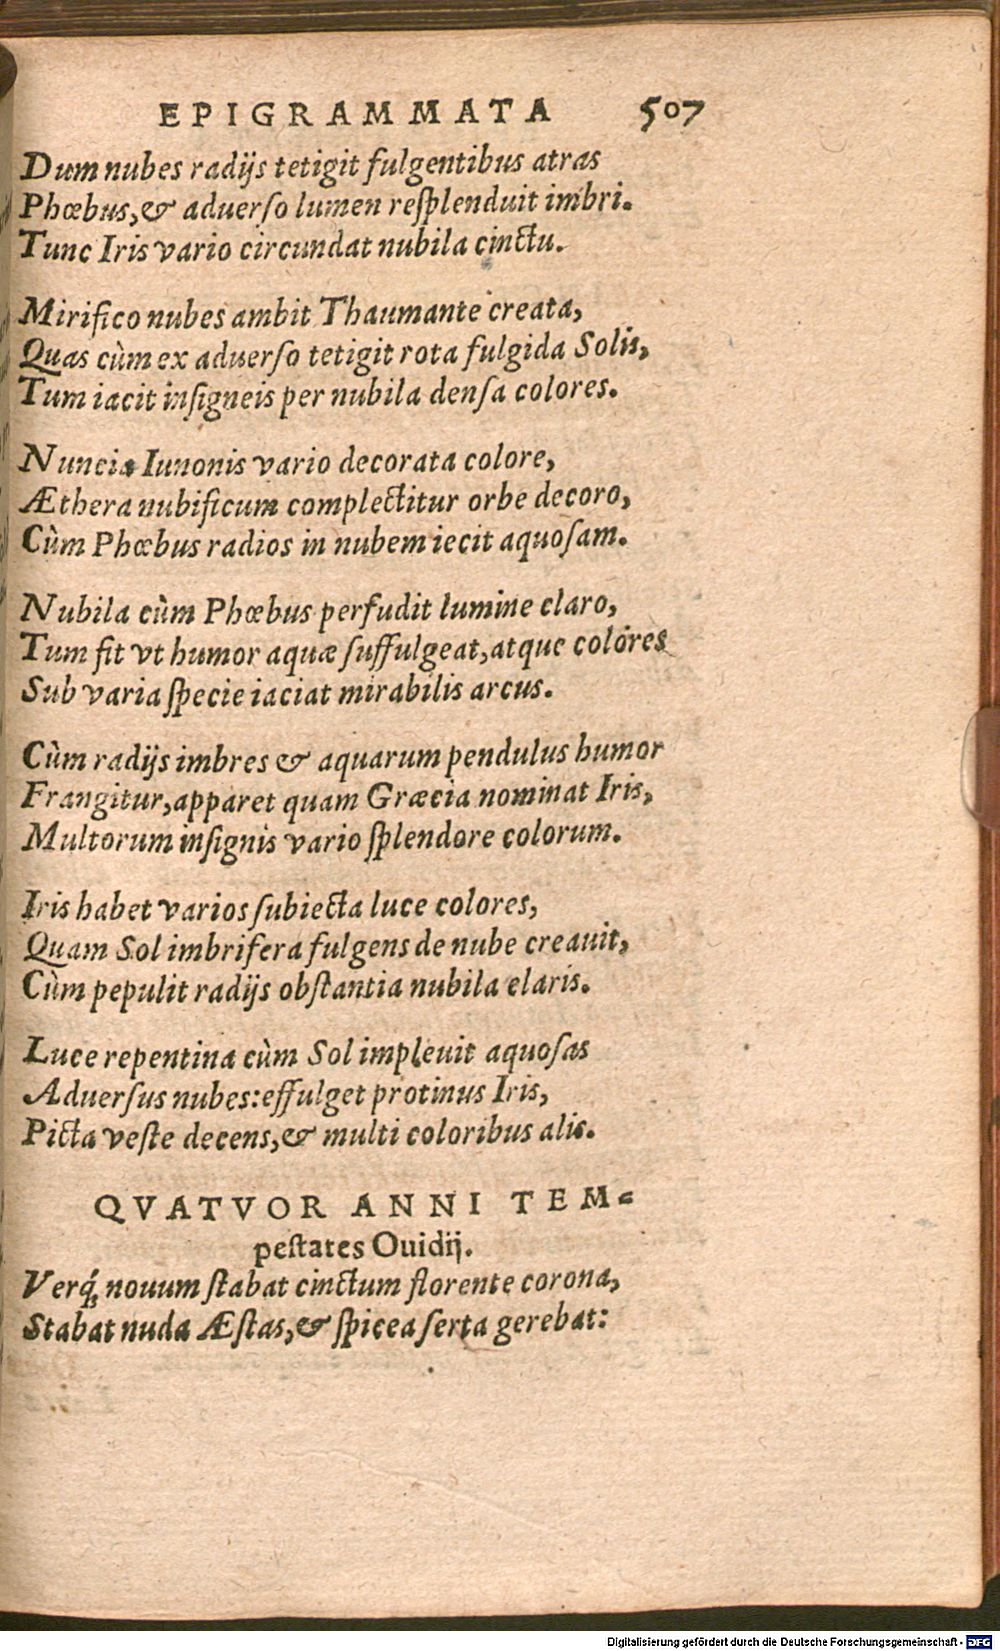 EPIGRAMMATA 507
Dum nubes radijs tetigit fulgentibus atras
Phœbus,& aduerſo lumen reſplenduit imbri.
Tunc Iris vario circundat nubila cinctu.
Mirifico nubes ambit Thaumante creata,
Quas cùm ex aduerſo tetigit rota fulgida Solis,
Tum iacit inſigneis per nubila denſa colores.
Nuncia Iunonis vario decorata colore,
Æthera nubificum complectitur orbe decoro,
Cùm Phœbus radios in nubem iecit aquoſam.
Nubila cùm Phœbus perfudit lumine claro,
Tum fit vt humor aquæ ſuffulgeat,atque colores
Sub varia ſpecie iaciat mirabilis arcus.
Cùm radijs imbres & aquarum pendulus humor
Frangitur,apparet quam Græcia nominat Iris,
Multorum inſignis vario ſplendore colorum.
Iris habet varios ſubiecta luce colores,
Quam Sol imbrifera fulgens de nube creauit,
Cùm pepulit radijs obſtantia nubila claris.
Luce repentina cùm Sol impleuit aquoſas
Aduerſus nubes:effulget protinus Iris,
Picta veſte decens,& multi coloribus alis.
QVATVOR ANNI TEM-
peſtates Ouidij.
Verq́; nouum ſtabat cinctum florente corona,
Stabat nuda Æſtas,& ſpicea ſerta gerebat:
Digitalisierung gefördert durch die Deutsche Forschungsgemeinschaft - DFG